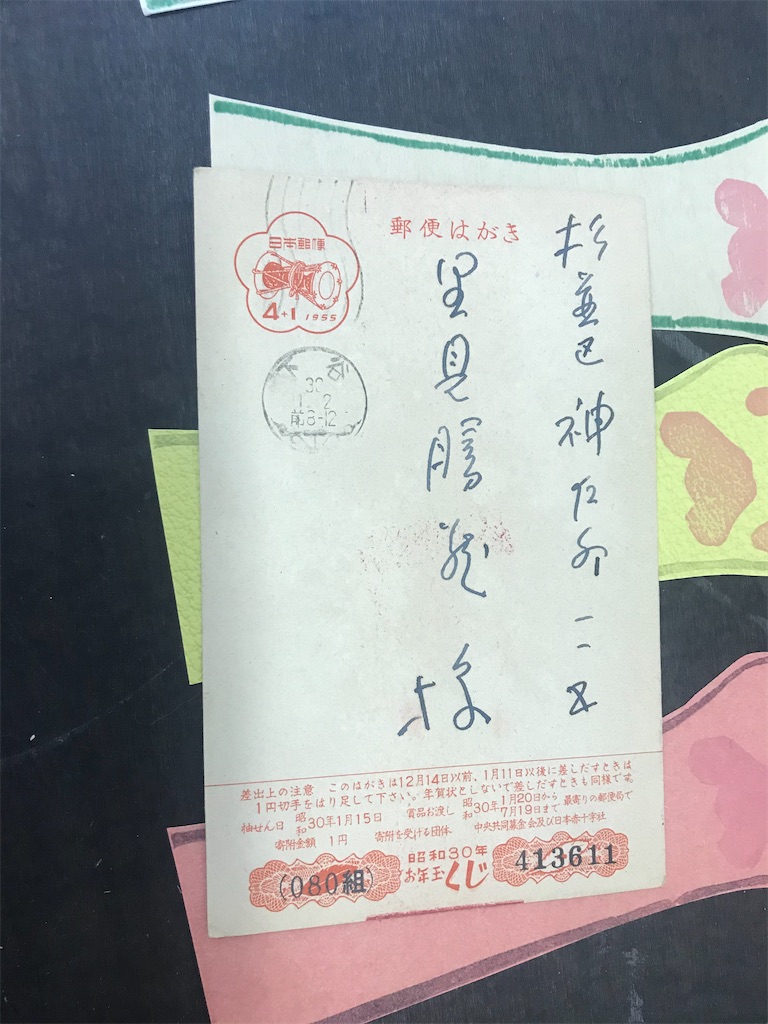 郵便はがき
日本郵便
4+1 1955
30
1.2
前8-12
杉並区神
里見勝蔵様
差出上の注意 このはがきは12月14日以前、1月11日以後に差しだすときは
1円切手をはり足して下さい。年賀状としないで差しだすときも同様です。
抽せん日 昭和30年1月15日 賞品お渡し 昭和30年1月20日から30年7月19日まで 最寄りの郵便局で
寄附金額 1円 寄附を受ける団体 中央共同募金会及び日本赤十字社
(080組) 昭和30年お年玉くじ 413611